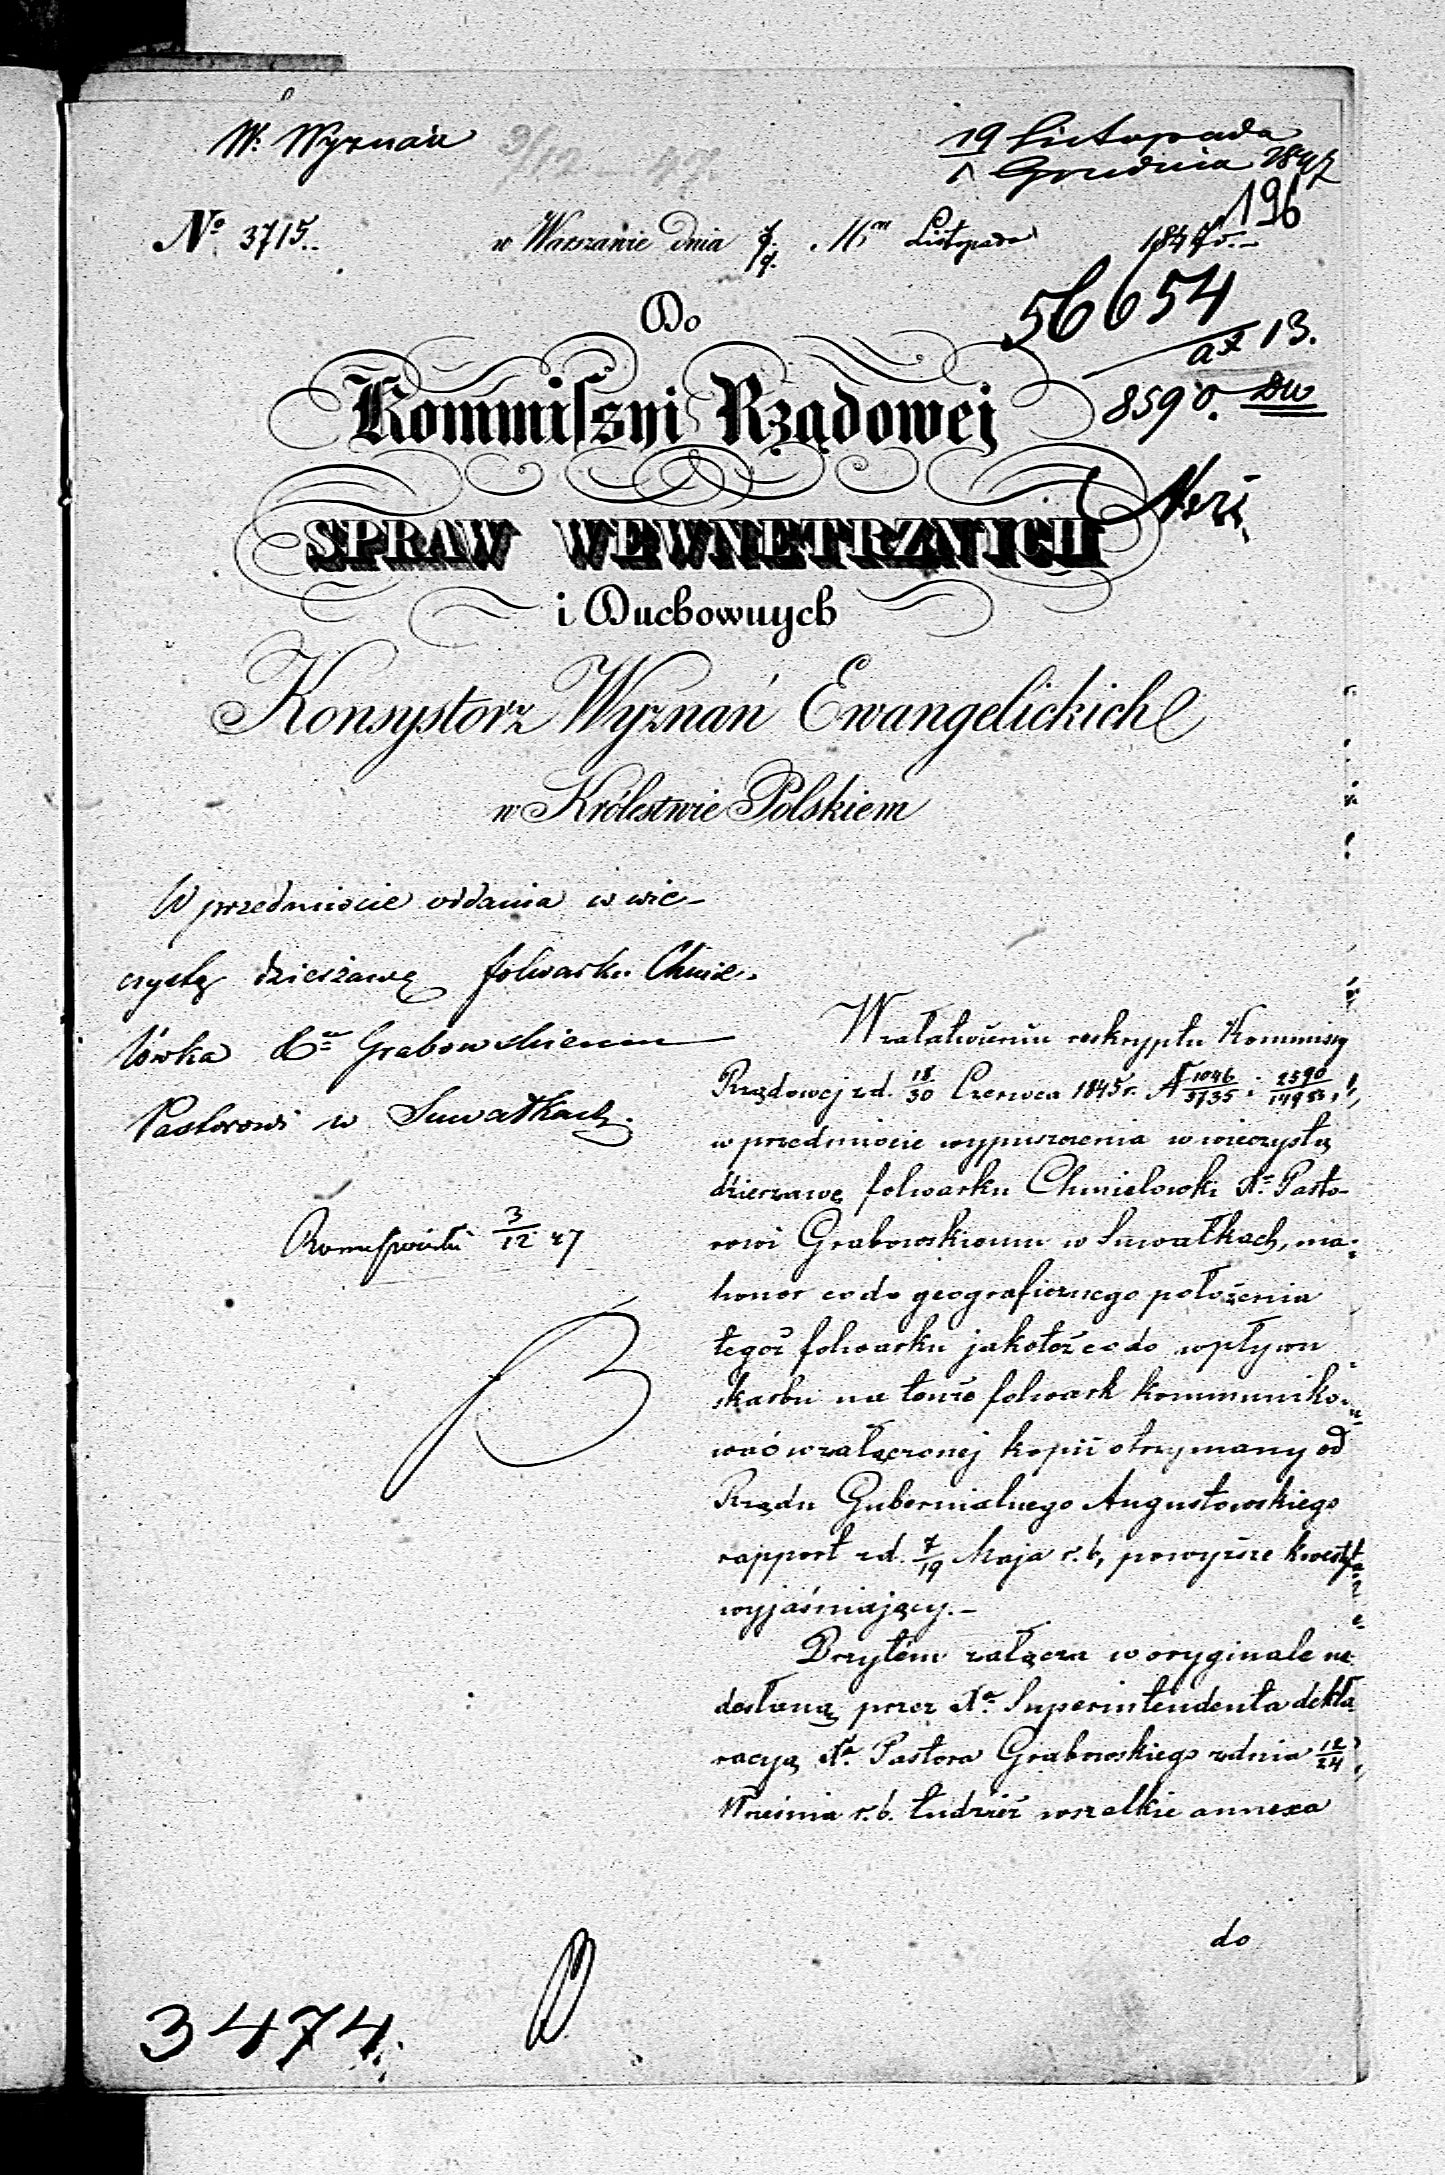 W. Wyznań
3/12 47.
19 Listopada
1 Grudnia 1847
196
No 3715.
w Warszawie dnia 16m Listopada 1847 r.
56654
a7 13.
8590.
Do
Kommissyi Rządowej
SPRAW WEWNETRZNYCH
i Duchownych
Konsystorz Wyznań Ewangelickich
w Królestwie Polskiem
W przedmiocie oddania w wie-
czystą dzierżawę folwarku Chmie-
lówka Xu Grabowskiemu
Pastorowi w Suwałkach.
3/12 47
W załatwieniu reskryptu Kommissyi
Rządowej z d. 18/30 Czerwca 1845 r. N 1046/5735 i 2590/14953,
w przedmiocie wypuszczenia w wieczystą
dzierzawę folwarku Chmielowki Xu Pasto-
rowi Grabowskiemu w Suwałkach, ma
honor co do geograficznego położenia
tegoż folwarku jakoteż co do wpływu
skarbu na tenże folwark kommuniko-
wać w załączonej kopii otrzymany od
Rządu Gubernialnego Augustowskiego
rapport z d. 7/19 Maja r. b., powyższe kwestye
wyjaśniający.-
Przytém załącza w oryginale na
desłaną przez Xa Superintendenta dekla
racyą Xa Pastora Grabowskiego z dnia 12/24
Września r. b. tudzież wszelkie annexa
do
3474.